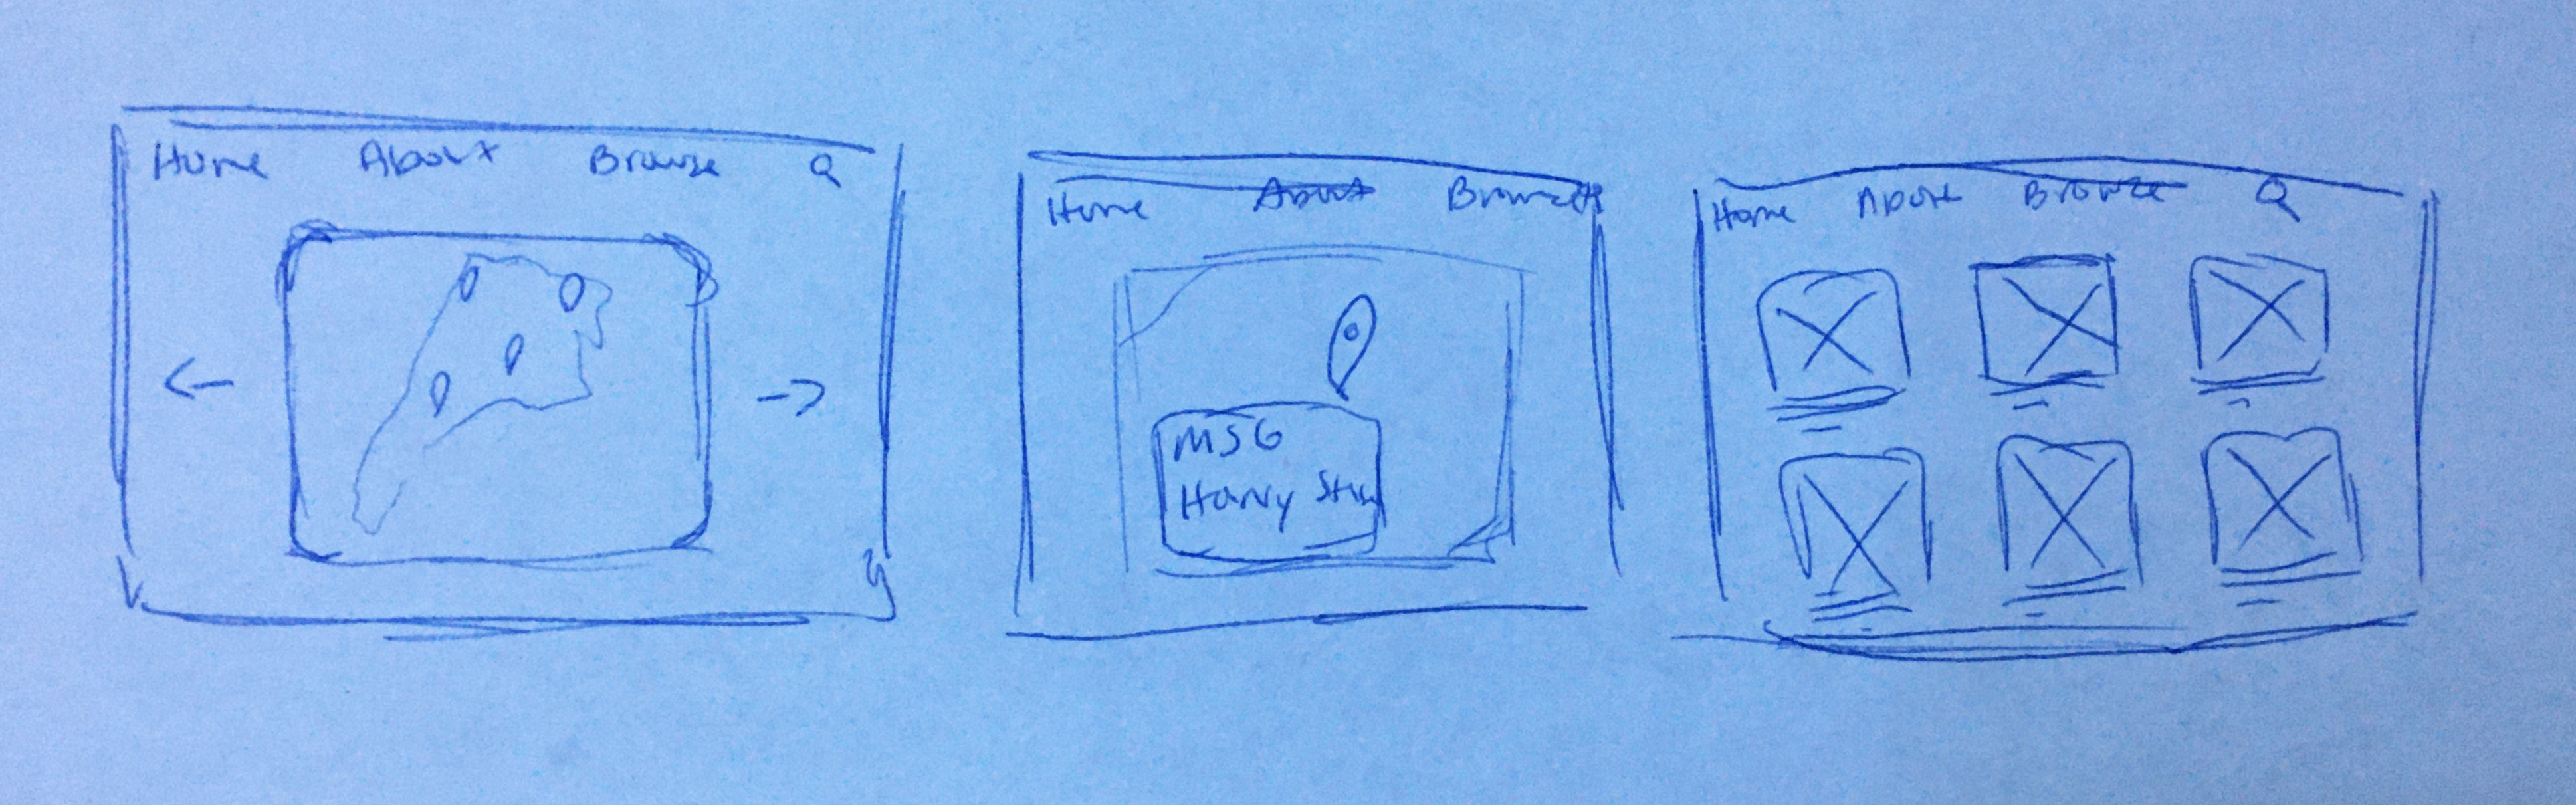 Home About Browse
Home About Browse
MSG
Harry
Home About Browse